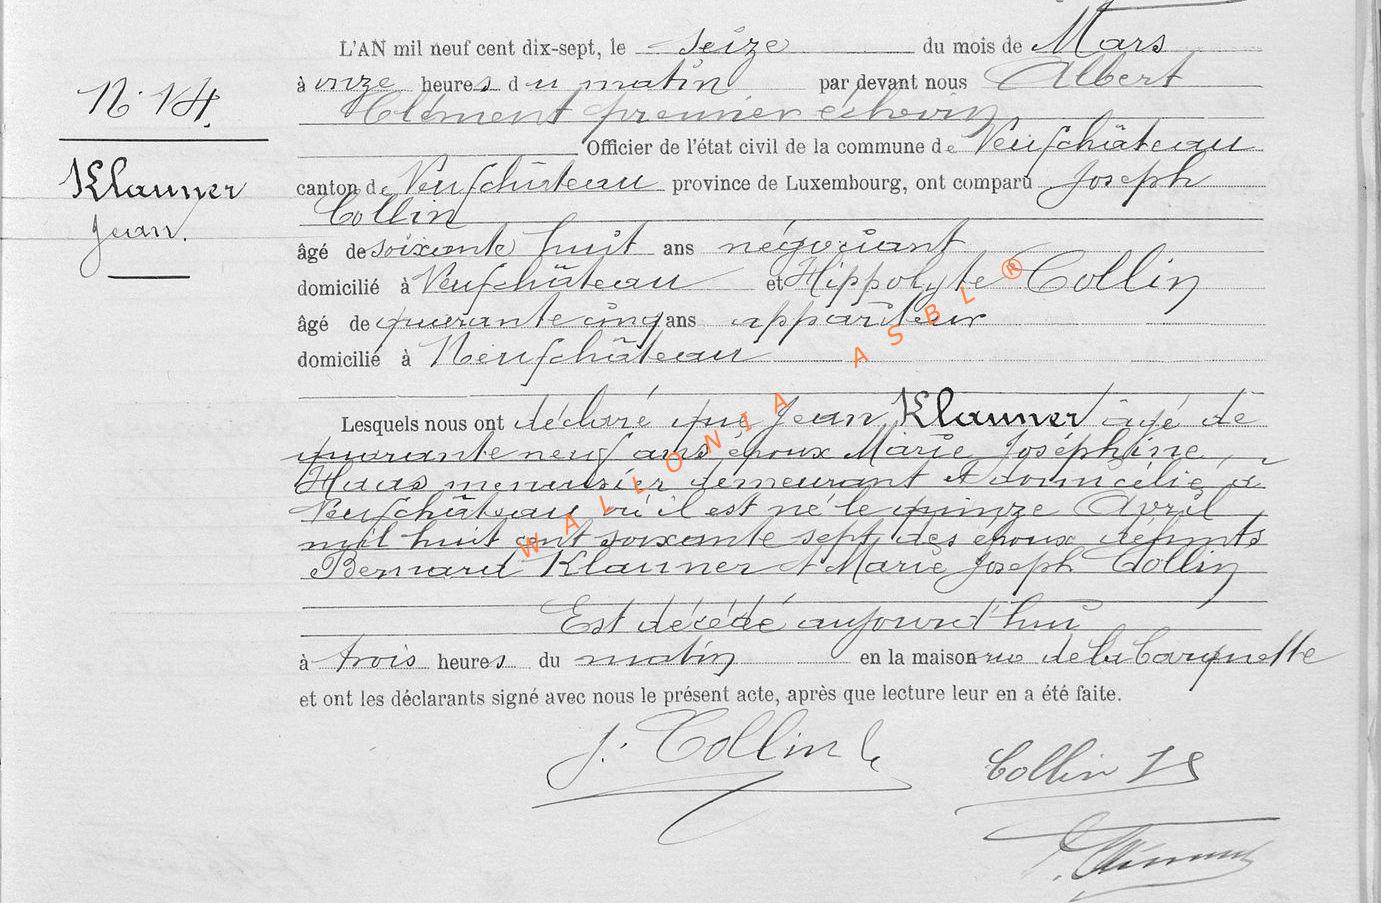 L'AN mil neuf cent dix-sept, le seize du mois de Mars
N. 14. à onze heures du matin par devant nous Albert
Clément premier échevin
Officier de l'état civil de la commune de Neufchâteau
Klauner canton de Neufchâteau province de Luxembourg, ont comparu Joseph
Jean. Collin
âgé de soixante huit ans négociant
domicilié à Neufchâteau et Hippolyte Collin
âgé de quarante cinq ans appariteur
domicilié à Neufchâteau
Lesquels nous ont déclaré que Jean Klauner âgé de
quarante neuf ans époux Marie Joséphine
Haas menuisier demeurant et domicilié à
Neufchâteau où il est né le quinze Avril
mil huit cent soixante sept des époux défunts
Bernard Klauner et Marie Joseph Collin
Est décédé aujourd'hui
à trois heures du matin en la maison rue de la Carquette
et ont les déclarants signé avec nous le présent acte, après que lecture leur en a été faite.
J. Collin
Collin
Clément
WALLONIA ASBL ®